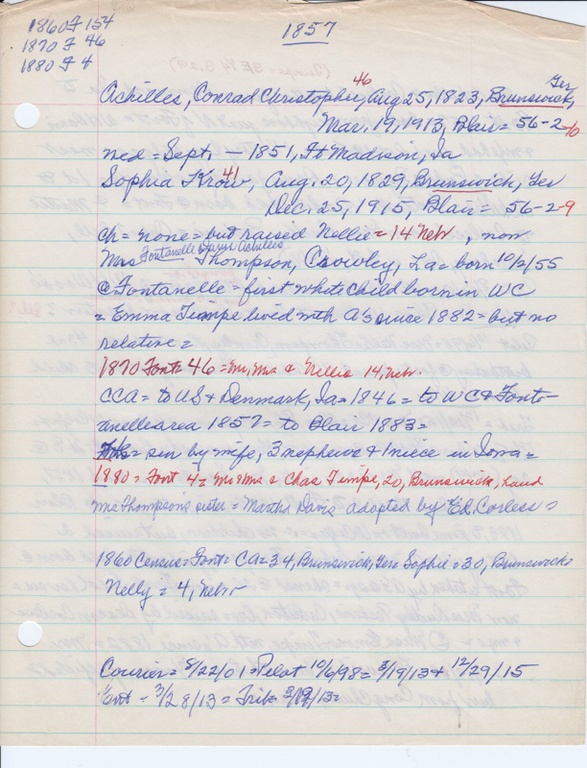 1860 F 154
1870 F 46
1880 F 4
1857
Achilles, Conrad Christopher, 46 Aug 25, 1823, Brunswick, Ger
Mar. 19, 1913, Blair = 56-2-10
med = Sept. - 1851, Ft Madison, Ia
Sophia Krow, 41 Aug. 20, 1829, Brunswick, Ger
Dec. 25, 1915, Blair = 56-2-9
ch = none = but raised Nellie = 14 Nebr, now
Mrs Fontanelle Achilles Thompson, Crowley, La = born 10/2/55
@ Fontanelle = first white child born in WC
= Emma Timpe lived with A's since 1882 = but no
relative =
1870 Font = 46 = Mr, Mrs & Nellie 14, Nebr.
CCA = to US & Denmark, Ia = 1846 = to WC & Font-
anelle area 1857 = to Blair 1883 =
= sur by wife, 3 nephews & 1 niece in Iowa =
1880 = Font 4 = Mr & Mrs & Chas Timpe, 20, Brunswick, Land
Mrs Thompson's sister = Martha Davis adopted by Ed. Corless =
1860 Census = Font = CA = 34, Brunswick, Ger = Sophie = 30, Brunswick =
Nelly = 4, Nebr
Courier = 8/22/01 = Pilot 10/6/98 = 3/19/13 & 12/29/15
Ent - 3/28/13 = Trib = 3/19/13 =